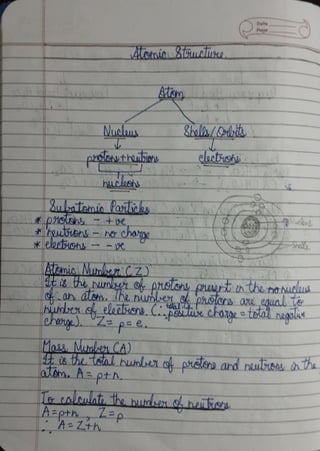 Date
Page
Atomic Structure.
Atom
Nucleus Shells/Orbits
protons+neutrons electrons
nucleons
Subatomic Particles
* protons - +ve
* neutrons - no charge
* electrons - -ve
shells
Atomic Number (Z)
It is the number of protons present in the nucleus
of an atom. The number of protons are equal to
number of electrons. (∵ total positive charge = total negative
charge). Z = p = e.
Mass Number (A)
It is the total number of protons and neutrons in the
atom. A = p+n.
To calculate the number of neutrons
A=p+n, Z=p
∴ A = Z+n